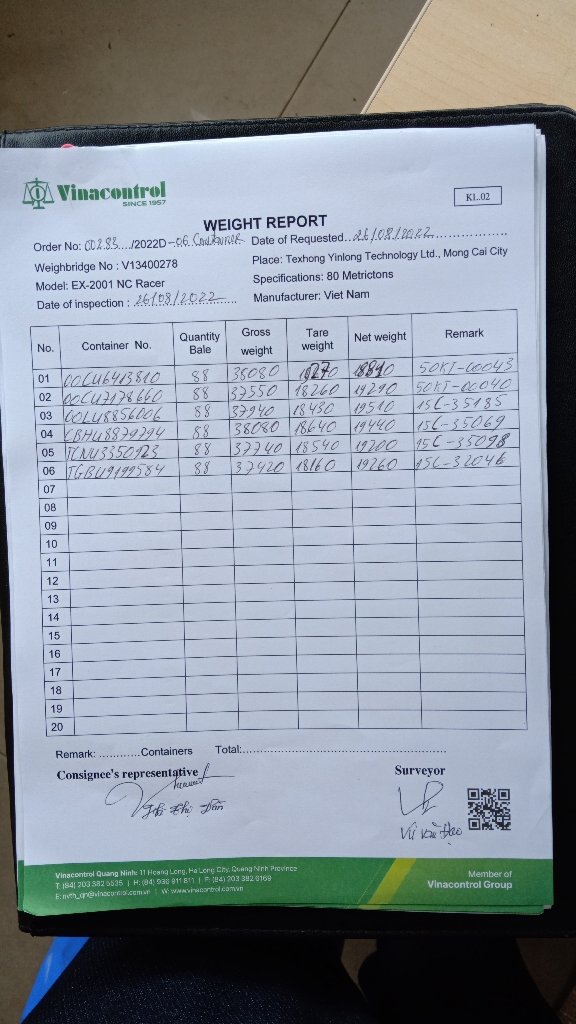 Vinacontrol
SINCE 1957
KL.02
WEIGHT REPORT
Order No: 00283.../2022D-06 Container Date of Requested...26/08/2022
Weighbridge No : V13400278 Place: Texhong Yinlong Technology Ltd., Mong Cai City
Model: EX-2001 NC Racer Specifications: 80 Metrictons
Date of inspection : 26/08/2022 Manufacturer: Viet Nam
No. Container No. Quantity Bale Gross weight Tare weight Net weight Remark
01 OOCU6413810 88 38080 18810 50KT-00043
02 OOCU7178660 88 37550 18260 19290 50KT-00040
03 OOLU8856006 88 37940 18430 19510 15C-35185
04 CBHU8879294 88 38080 18640 19440 15C-35069
05 TCNU3350123 88 37740 18540 19200 15C-35098
06 TGBU9199584 88 37420 18160 19260 15C-32046
07
08
09
10
11
12
13
14
15
16
17
18
19
20
Remark: ............Containers Total:..........
Consignee's representative Surveyor
Vinacontrol Quang Ninh: 11 Hoang Long, Ha Long City, Quang Ninh Province
T: (84) 203 382 5535 | H: (84) 936 911 811 | F: (84) 203 382 6169
E: nvth_qn@vinacontrol.com.vn | W: www.vinacontrol.com.vn
Member of
Vinacontrol Group